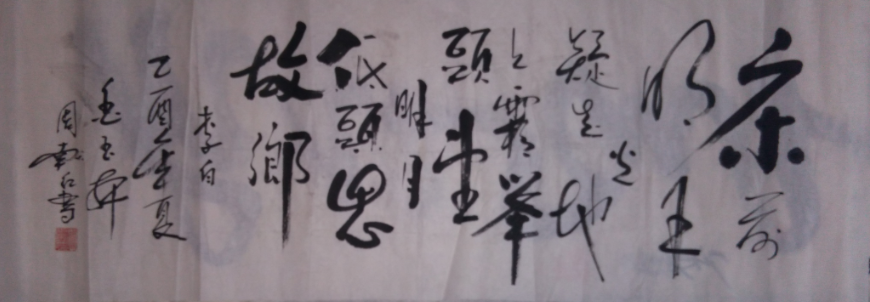 床前
明月
光
疑是地
上霜举
頭望
明月
低頭思
故鄉
李白
乙酉年夏
周
書